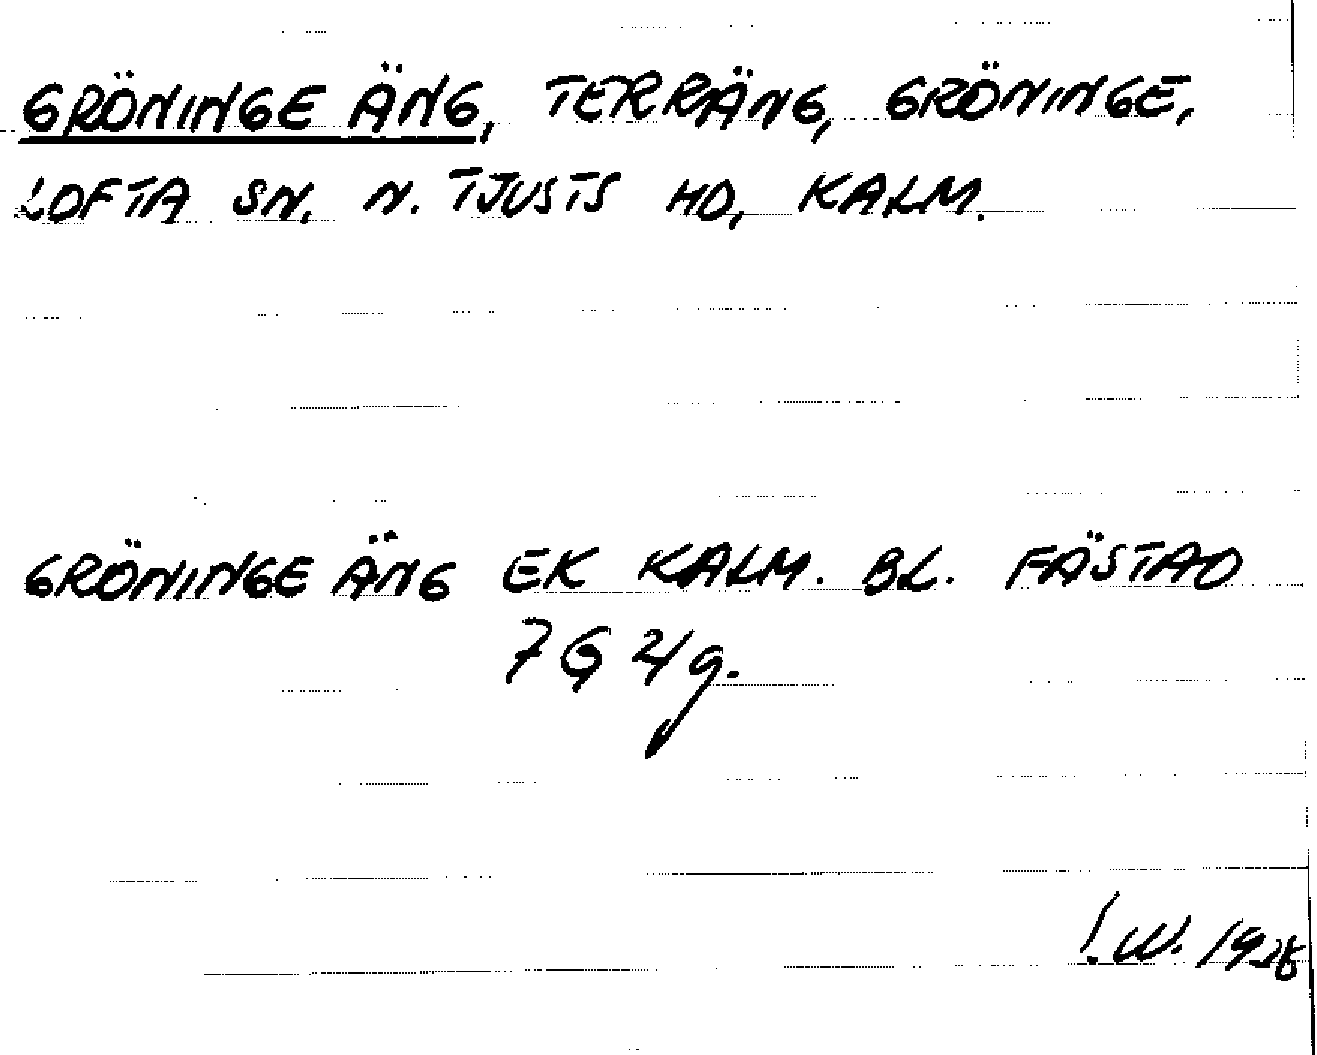 GRÖNINGE ÄNG, TERRÄNG, GRÖNINGE,
LOFTA SN. N. TJUSTS HD, KALM.
GRÖNINGE ÄNG EK KALM. BL. FÄSTAD
7G 4g.
I.W.